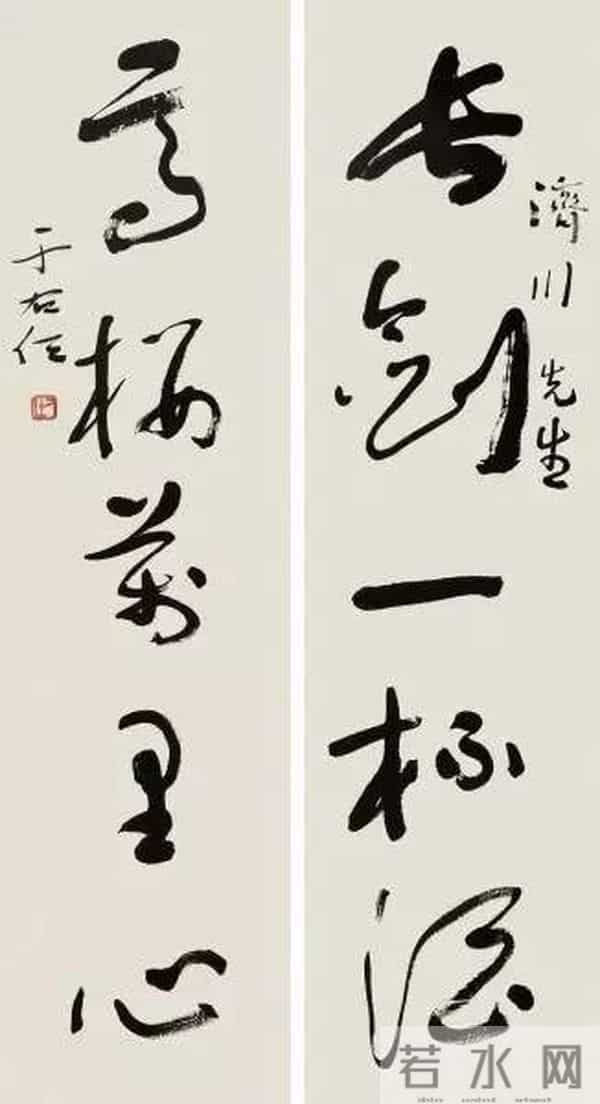 濟川先生
長劍一杯酒
高樓萬里心
于右任
若水网